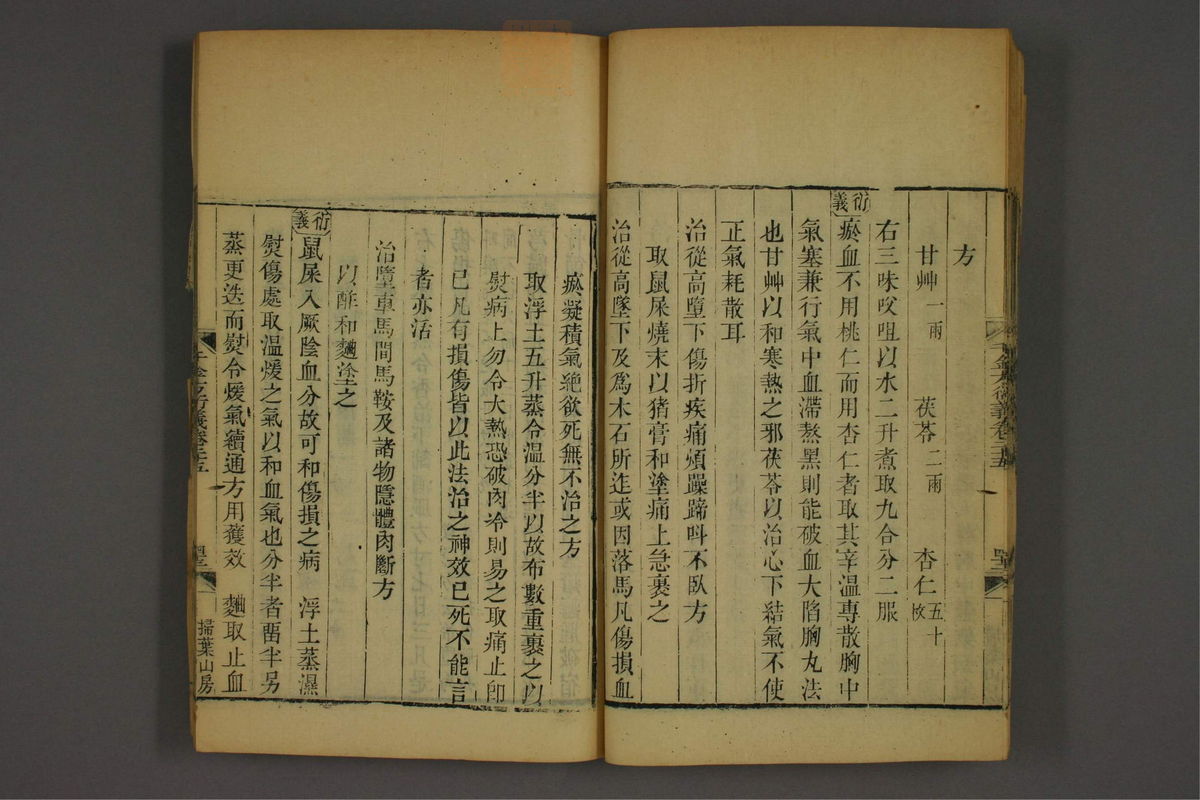 方
甘艸一兩　茯苓二兩　杏仁五十枚
右三味㕮咀以水二升煮取九合分二服
衍義
瘀血不用桃仁而用杏仁者取其辛温専散胸中
氣塞兼行氣中血滯熬黑則能破血大陷胸丸法
也甘艸以和寒熱之邪茯苓以治心下結氣不使
正氣耗散耳
治從高墮下傷折疾痛煩躁蹄呌不臥方
取鼠屎燒末以猪膏和塗痛上急裹之
治從高墜下及爲木石所迮或因落馬凡傷損血
瘀凝積氣絶欲死無不治之方
取浮土五升蒸令溫分半以故布數重裹之以
熨病上勿令大熱恐破肉冷則易之取痛止卽
已凡有損傷皆以此法治之神效已死不能言
者亦活
治墮車馬間馬鞍及諸物隱體肉斷方
以酢和麵塗之
衍義
鼠屎入厥陰血分故可和傷損之病　浮土蒸濕
熨傷處取温煖之氣以和血氣也分半者畱半另
蒸更迭而熨令煖氣續通方用獲效　麵取止血
千金方衍義卷二十五
掃葉山房